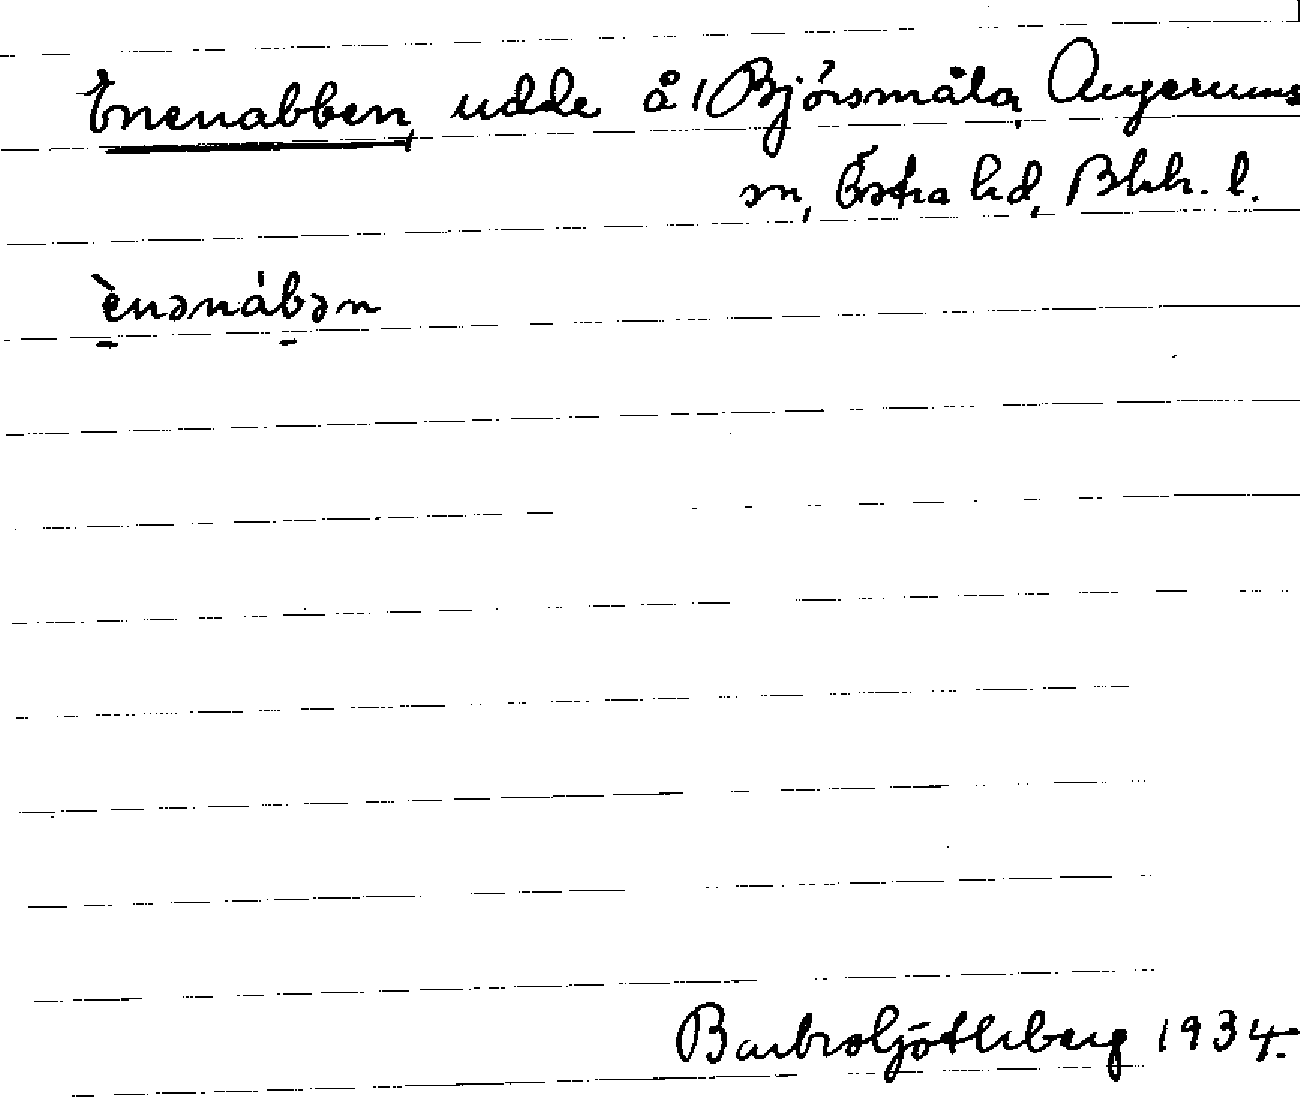 Enenabben, udde å 1 Björsmåla, Augerums
sn, Östra hd, Blek. l.
ènənábən
Barbro Götherberg 1934.